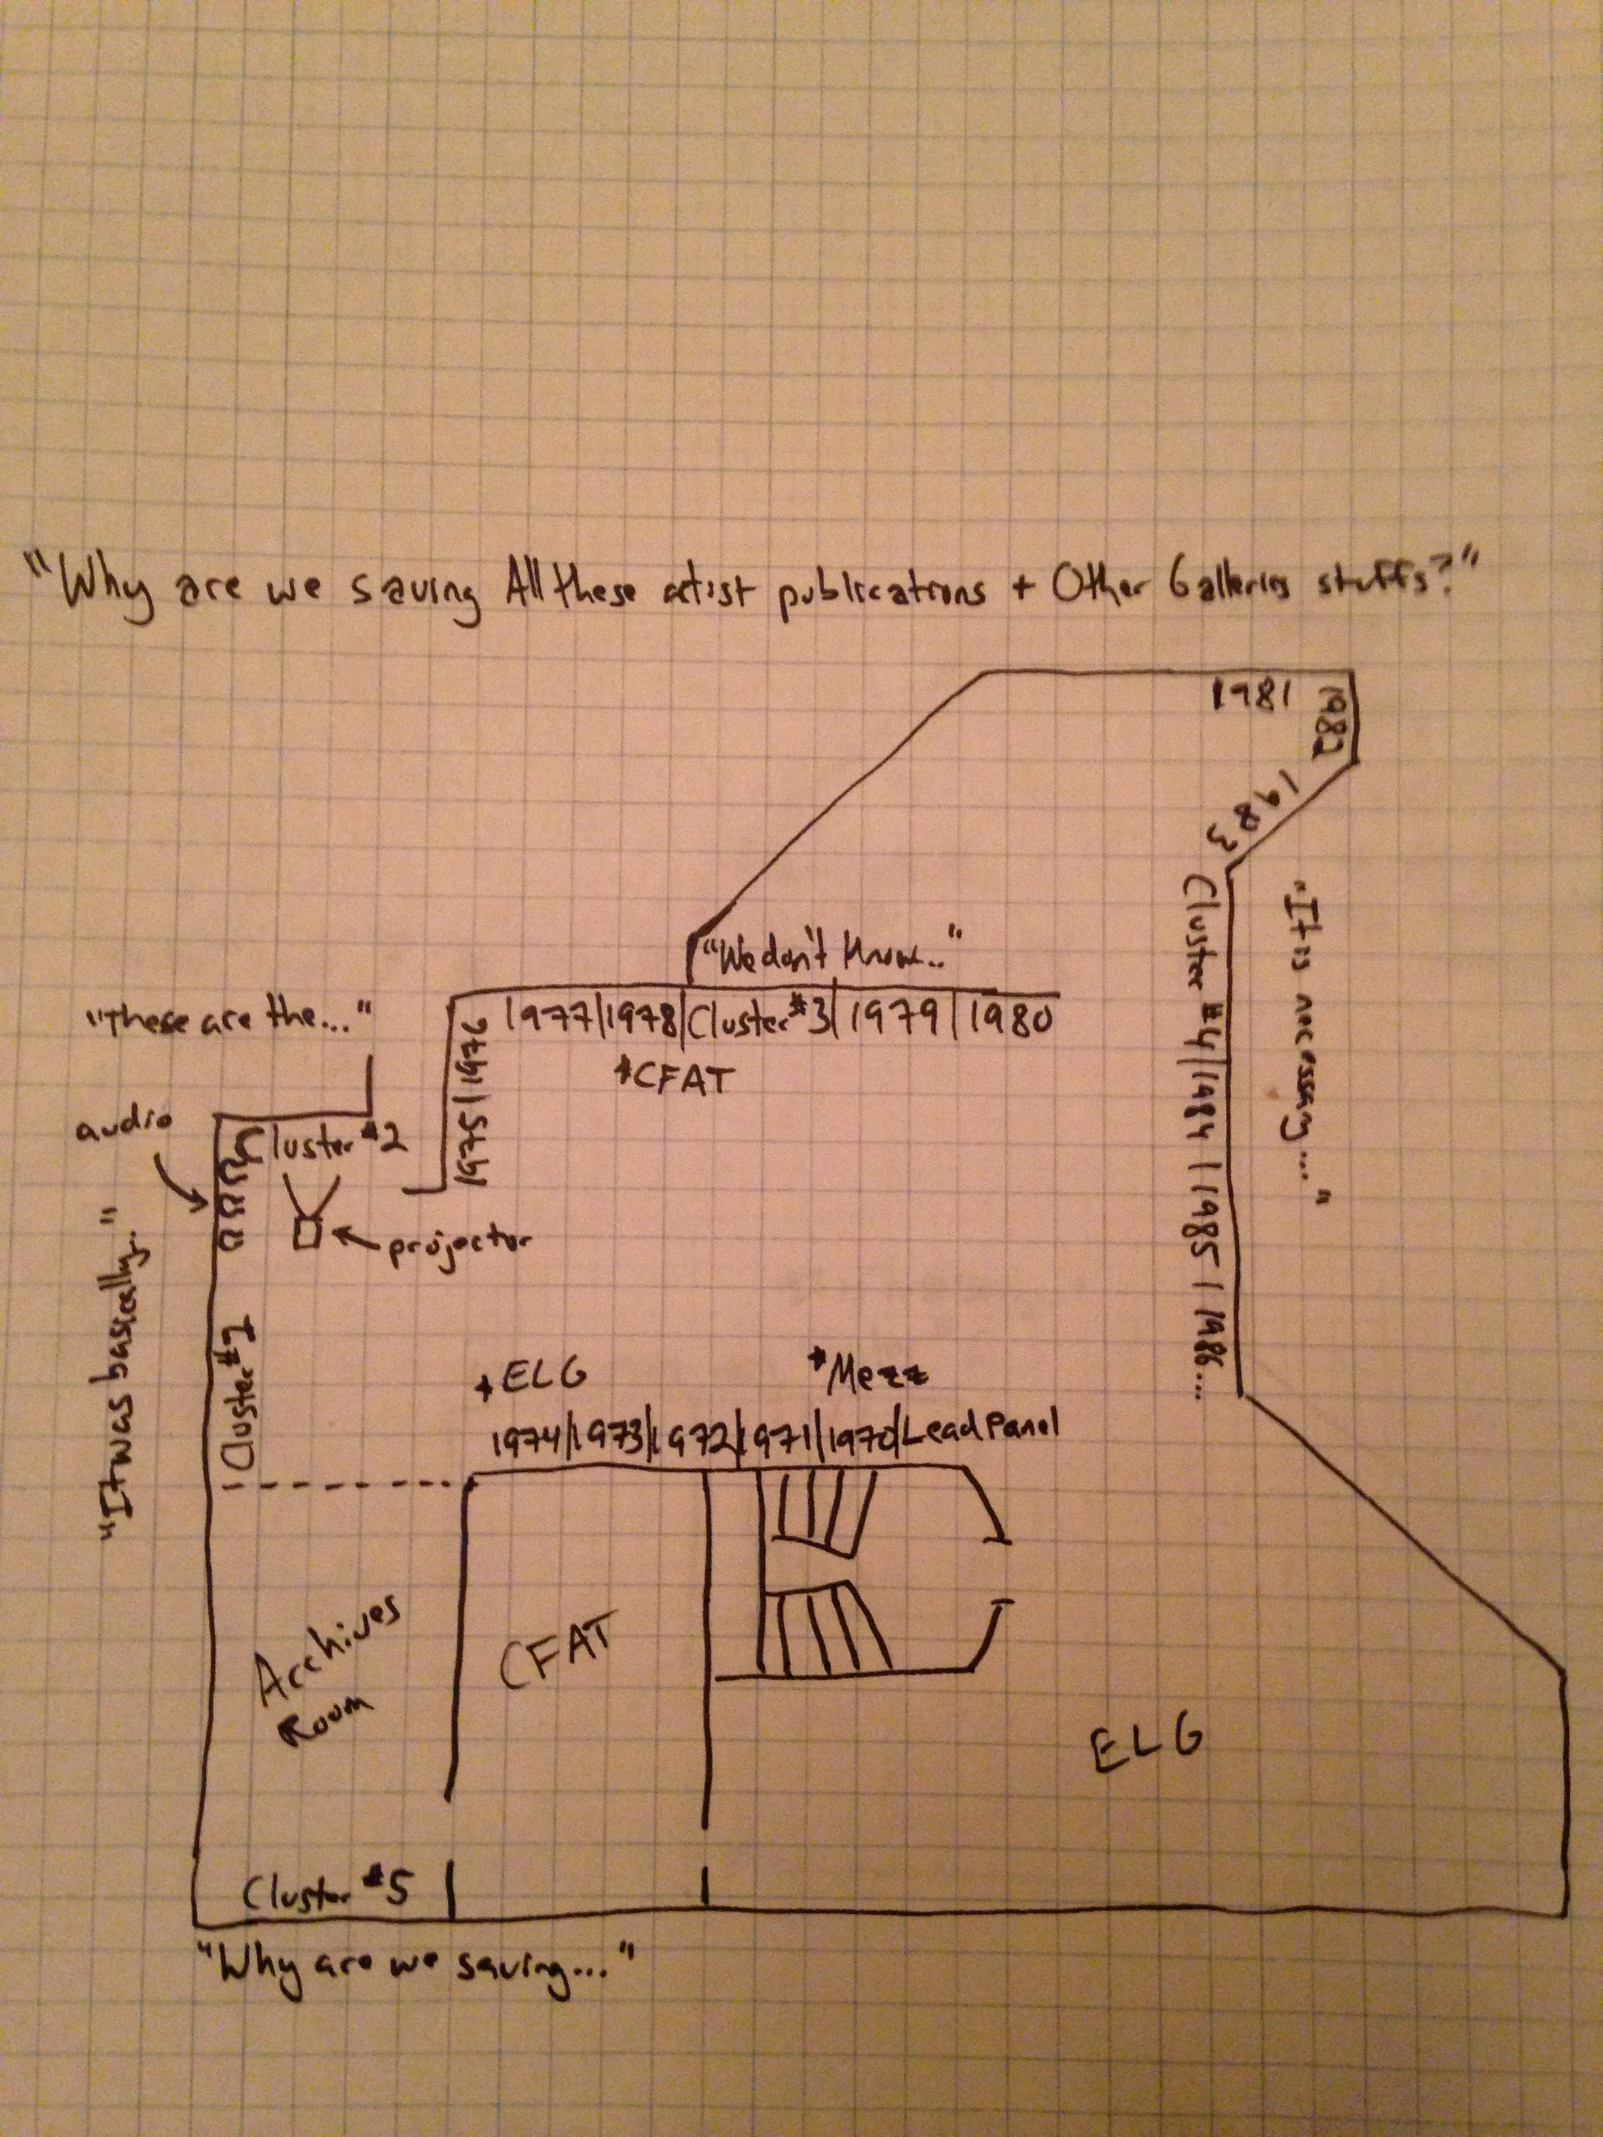 "Why are we saving All these artist publications + Other Galleries stuffs?"
1981
1982
1983
"We don't know..."
"These are the..."
1977 | 1978 | Cluster #3 | 1979 | 1980
*CFAT
1975 | 1976
Cluster #4 | 1984 | 1985 | 1986...
"It is necessary..."
audio
Cluster #2
projector
"It was basically..."
Cluster #1
*ELG
*Mezz
1974 | 1973 | 1972 | 1971 | 1970 | Lead Panel
Archives
Room
CFAT
ELG
Cluster #5
"Why are we saving..."